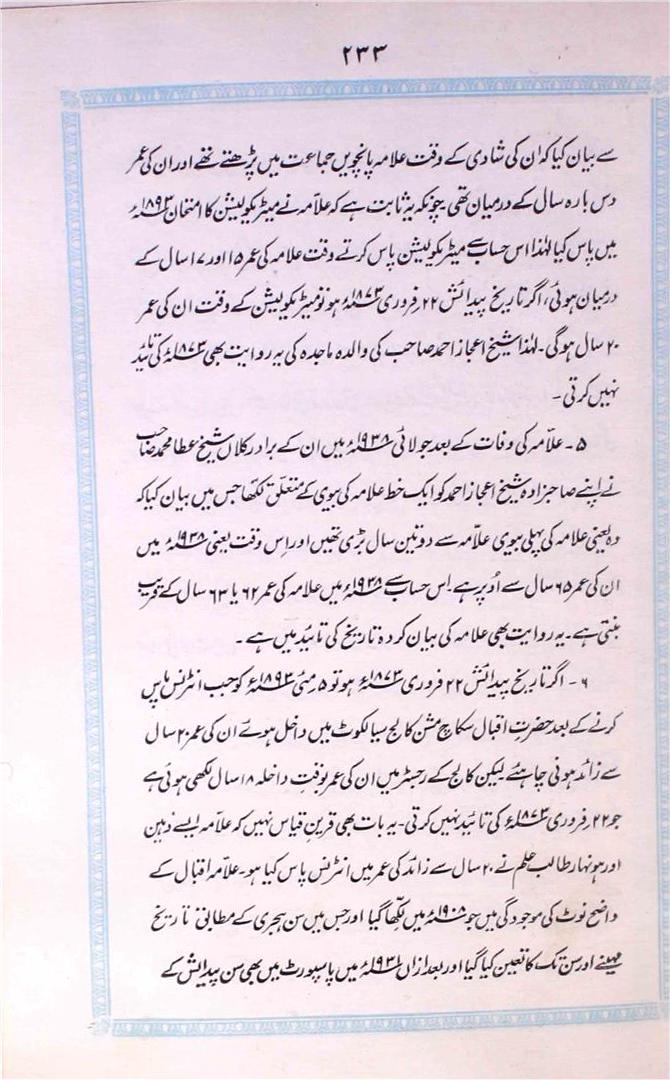 ۲۳۳
سے بیان کیا کہ ان کی شادی کے وقت علامہ پانچویں جماعت میں پڑھتے تھے اور ان کی عمر
دس بارہ سال کے درمیان تھی۔ چونکہ یہ ثابت ہے کہ علامہ نے میٹریکولیشن کا امتحان ۱۸۹۳ء
میں پاس کیا لہٰذا اس حساب سے میٹریکولیشن پاس کرتے وقت علامہ کی عمر ۱۵ اور ۱۷ سال کے
درمیان ہوئی، اگر تاریخ پیدائش ۲۲ فروری ۱۸۷۳ء ہو تو میٹریکولیشن کے وقت ان کی عمر
۲۰ سال ہوگی۔ لہٰذا شیخ اعجاز احمد صاحب کی والدہ ماجدہ کی یہ روایت بھی ۱۸۷۳ء کی تائید
نہیں کرتی۔
۵۔ علامہ کی وفات کے بعد جولائی ۱۹۳۸ء میں ان کے برادر کلاں شیخ عطا محمد صاحب
نے اپنے صاحبزادہ شیخ اعجاز احمد کو ایک خط علامہ کی بیوی کے متعلق لکھا جس میں بیان کیا کہ
وہ یعنی علامہ کی پہلی بیوی علامہ سے دو تین سال بڑی تھیں اور اس وقت یعنی ۱۹۳۸ء میں
ان کی عمر ۶۵ سال سے اُوپر ہے۔ اس حساب سے ۱۹۳۸ء میں علامہ کی عمر ۶۲ یا ۶۳ سال کے قریب
بنتی ہے۔ یہ روایت بھی علامہ کی بیان کردہ تاریخ کی تائید میں ہے۔
۶۔ اگر تاریخ پیدائش ۲۲ فروری ۱۸۷۳ء ہو تو ۵ مئی ۱۸۹۳ء کو جب انٹرنس پاس
کرنے کے بعد حضرت اقبال سکاچ مشن کالج سیالکوٹ میں داخل ہوئے ان کی عمر ۲۰ سال
سے زائد ہونی چاہئے لیکن کالج کے رجسٹر میں ان کی عمر بوقتِ داخلہ ۱۸ سال لکھی ہوئی ہے
جو ۲۲ فروری ۱۸۷۳ء کی تائید نہیں کرتی۔ یہ بات بھی قرینِ قیاس نہیں کہ علامہ ایسے ذہین
اور ہونہار طالب علم نے ۲۰ سال سے زائد کی عمر میں انٹرنس پاس کیا ہو۔ علامہ اقبال کے
واضح نوٹ کی موجودگی میں جو ۱۹۰۸ء میں لکھا گیا اور جس میں سن ہجری کے مطابق تاریخ
مہینے اور سن تک کا تعین کیا گیا اور بعد ازاں ۱۹۳۱ء میں پاسپورٹ میں بھی سن پیدائش کے